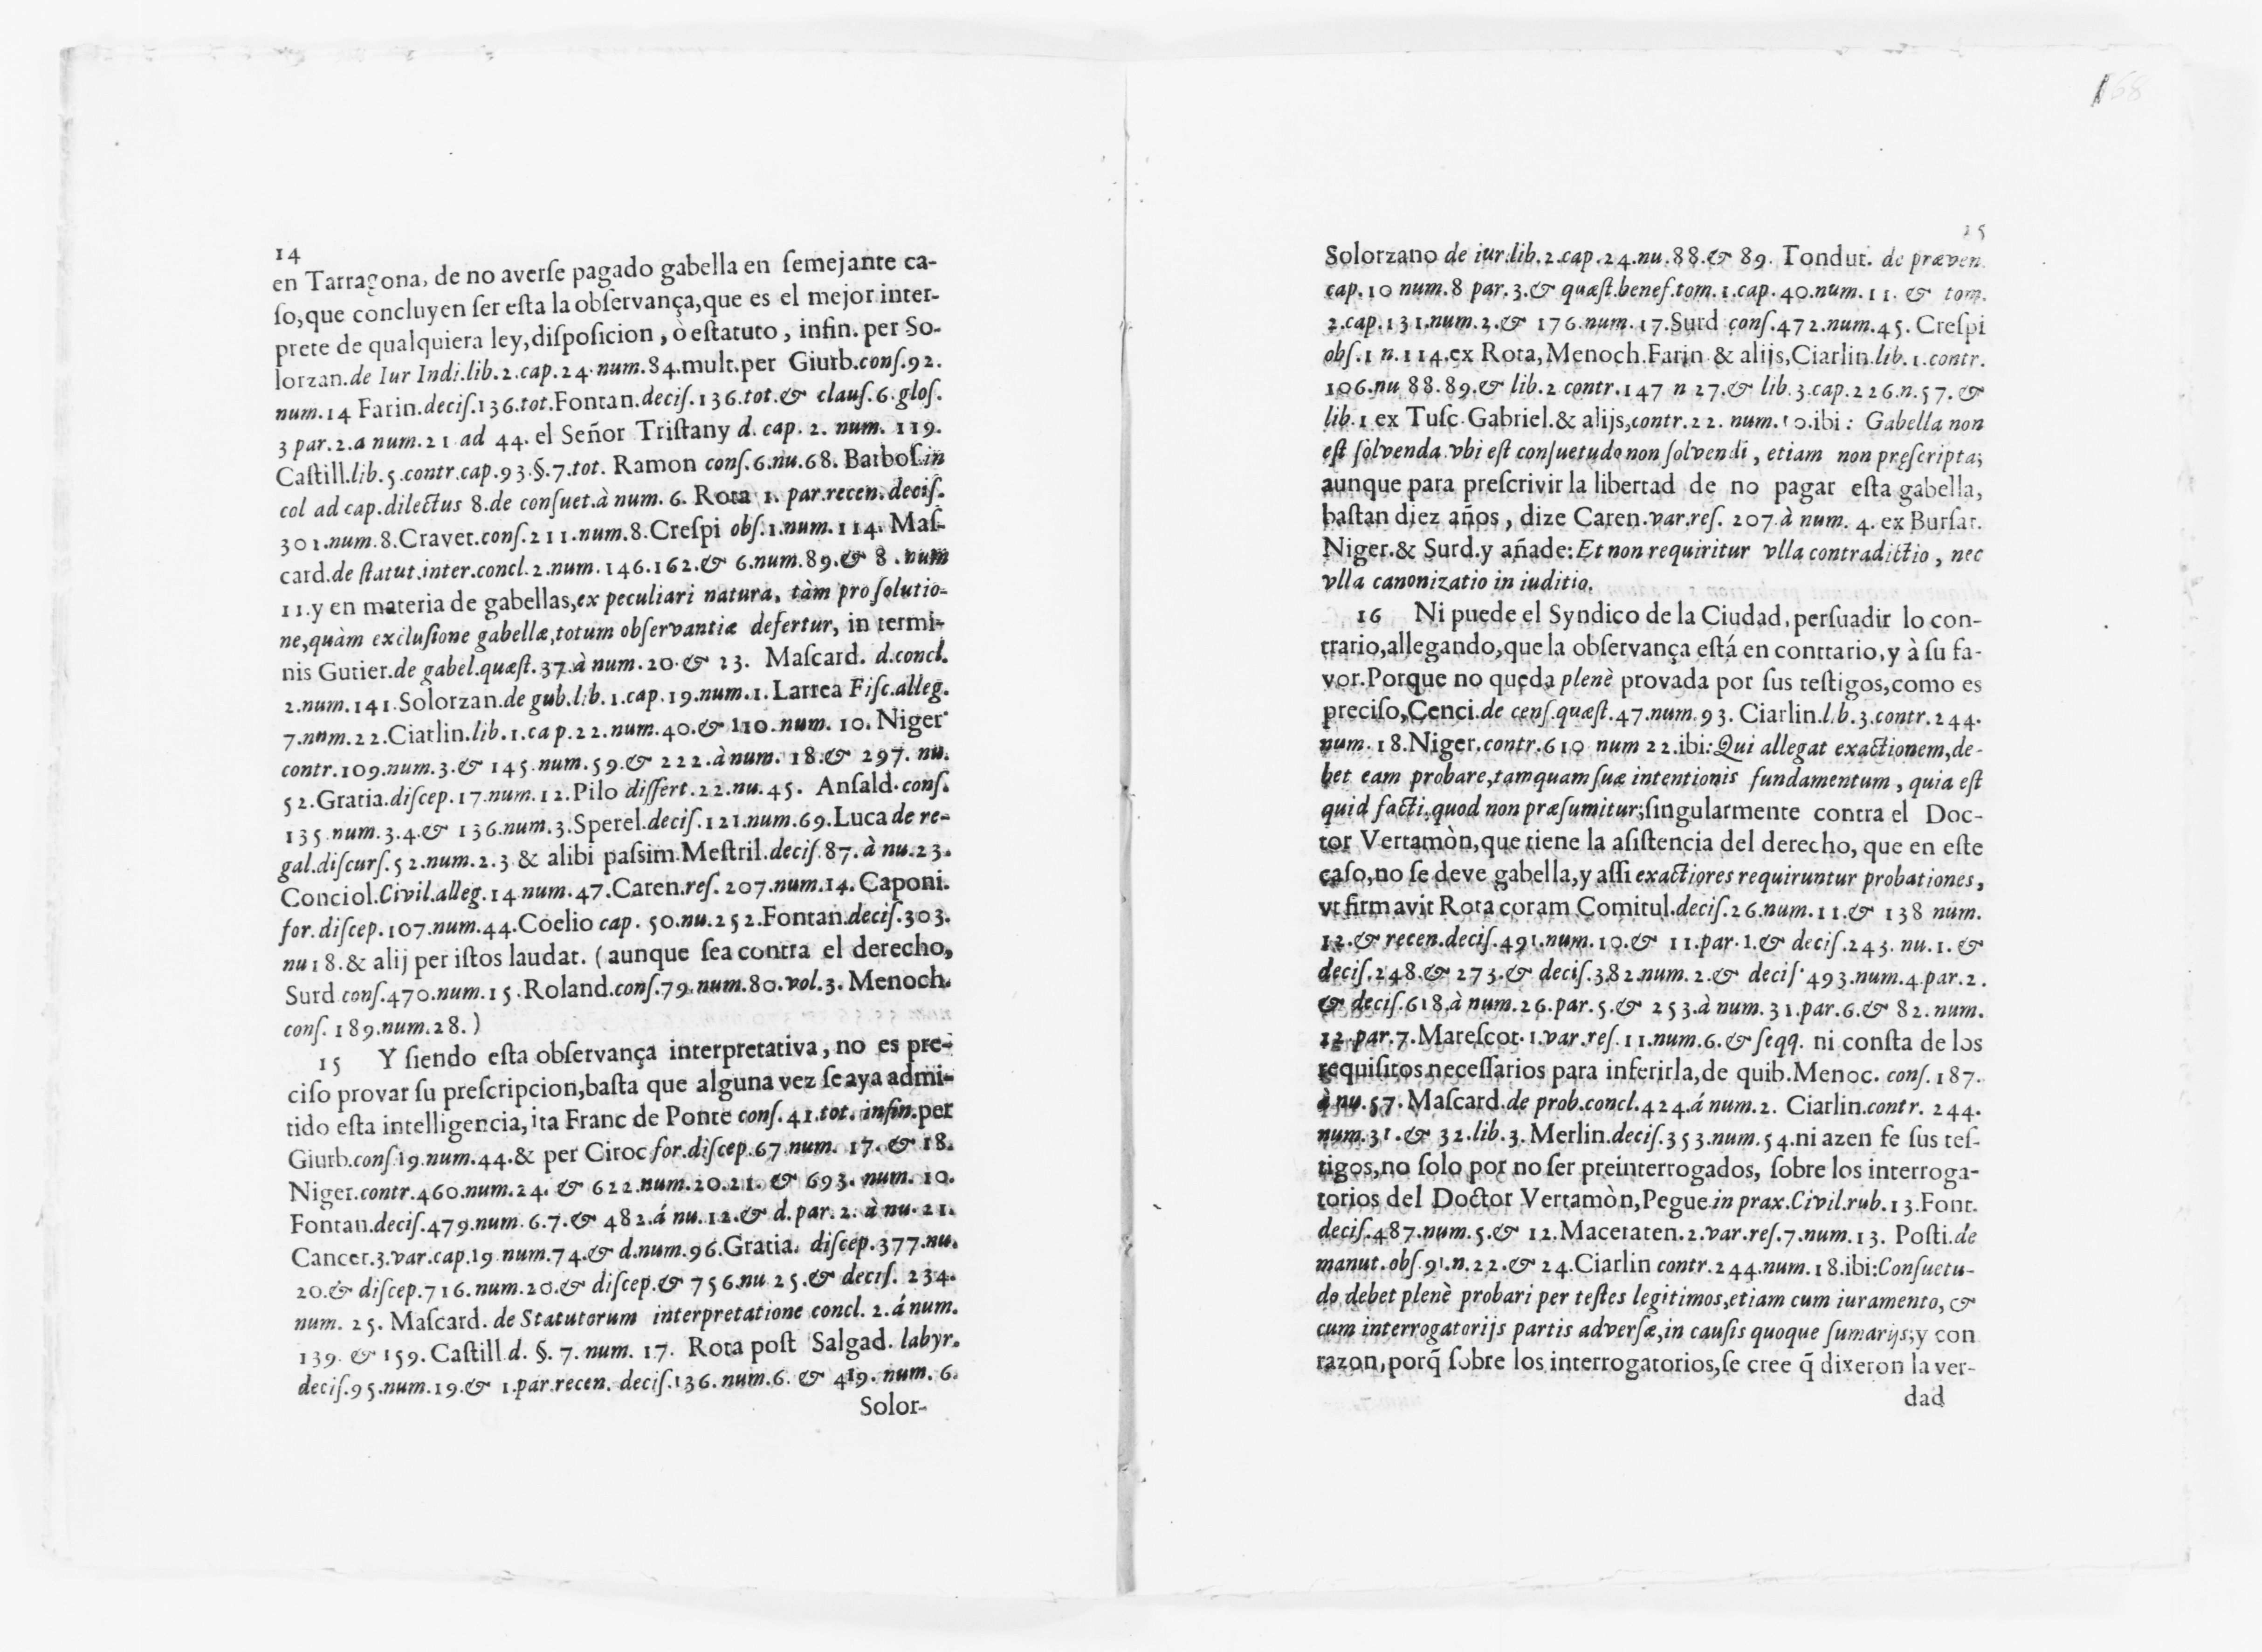 14
en Tarragona, de no averſe pagado gabella en ſemejante ca-
ſo,que concluyen ſer eſta la obſervança,que es el mejor inter-
prete de qualquiera ley,diſpoſicion , ò eſtatuto , infin. per So-
lorzan.de Iur Indi.lib.2.cap.24.num.84.mult.per Giurb.conſ.92.
num.14 Farin.deciſ.136.tot.Fontan.deciſ.136.tot.& clauſ.6.gloſ.
3 par.2.a num.21 ad 44. el Señor Triſtany d. cap. 2. num. 119.
Caſtill.lib.5.contr.cap.93.§.7.tot. Ramon conſ.6.nu.68. Barboſ.in
col ad cap.dilectus 8.de conſuet.à num. 6. Rota 1. par.recen.deciſ.
301.num.8.Cravet.conſ.211.num.8.Creſpi obſ.1.num.114. Maſ-
card.de ſtatut.inter.concl.2.num.146.162.& 6.num.89.& 8.num
11.y en materia de gabellas,ex peculiari natura, tàm pro ſolutio-
ne,quàm excluſione gabellæ,totum obſervantiæ defertur, in termi-
nis Gutier.de gabel.quæſt.37.à num.20.& 23. Maſcard. d.concl.
2.num.141.Solorzan.de gub.lib.1.cap.19.num.1.Larrea Fiſc.alleg.
7.num.22.Ciarlin.lib.1.cap.22.num.40.& 110.num. 10. Niger
contr.109.num.3.& 145.num.59.& 222.à num. 18.& 297. nu.
52.Gratia.diſcep.17.num.12.Pilo diſſert.22.nu.45. Anſald.conſ.
135.num.3.4.& 136.num.3.Sperel.deciſ.121.num.69.Luca de re-
gal.diſcurſ.52.num.2.3 & alibi paſsim.Meſtril.deciſ.87.à nu.23.
Conciol.Civil.alleg.14.num.47.Caren.reſ.207.num.14. Caponi.
for.diſcep.107.num.44.Coelio cap. 50.nu.252.Fontan.deciſ.303.
nu18.& alij per iſtos laudat. (aunque ſea contra el derecho,
Surd conſ.470.num.15.Roland.conſ.79.num.80.vol.3. Menoch.
conſ. 189.num.28.)
15 Y ſiendo eſta obſervança interpretativa, no es pre-
ciſo provar ſu preſcripcion,baſta que alguna vez ſe aya admi-
tido eſta intelligencia, ita Franc de Ponte conſ.41.tot.infin.per
Giurb.conſ.19.num.44.& per Ciroc for.diſcep.67.num. 17.& 18.
Niger.contr.460.num.24. & 622.num.20.21. & 693. num. 10.
Fontan.deciſ.479.num.6.7.& 482.á nu.12.& d.par.2. à nu.21.
Cancer.3.var.cap.19.num.74.& d.num.96.Gratia. diſcep.377.nu.
20.& diſcep.716.num.20.& diſcep.& 756.nu 25.& deciſ. 234.
num. 25. Maſcard. de Statutorum interpretatione concl. 2.á num.
139. & 159. Caſtill d. §. 7. num. 17. Rota poſt Salgad. labyr.
deciſ.95.num.19.& 1.par.recen. deciſ.136.num.6. & 419.num.6.
Solor-
15
Solorzano de iur.lib.2.cap.24.nu.88.& 89. Tondut. de præven.
cap.10 num.8 par.3.& quæſt.benef.tom.1.cap.40.num.11. & tom.
2.cap.131.num.2.& 176.num.17.Surd conſ.472.num.45. Creſpi
obſ.1 n.114.ex Rota, Menoch.Farin & alijs,Ciarlin.lib.1.contr.
106.nu 88.89.& lib.2 contr.147 n 27.& lib.3.cap.226.n.57.&
lib.1 ex Tuſc.Gabriel.& alijs,contr.22. num.10.ibi : Gabella non
eſt ſolvenda vbi eſt conſuetudo non ſolvendi , etiam non pręſcripta;
aunque para preſcrivir la libertad de no pagar eſta gabella,
baſtan diez años , dize Caren.var.reſ. 207.à num. 4. ex Burſat.
Niger.& Surd.y añade:Et non requiritur vlla contradictio , nec
vlla canonizatio in iuditio.
16 Ni puede el Syndico de la Ciudad, perſuadir lo con-
trario,allegando,que la obſervança eſtá en contrario,y à ſu fa-
vor.Porque no queda plenè provada por ſus teſtigos,como es
preciſo,Cenci.de cenſ.quæſt.47.num.93. Ciarlin.lib.3.contr.244.
num.18.Niger.contr.610 num 22.ibi:Qui allegat exactionem,de-
bet eam probare,tamquam ſuæ intentionis fundamentum , quia eſt
quid facti,quod non præſumitur;ſingularmente contra el Doc-
tor Vertamòn,que tiene la aſiſtencia del derecho, que en eſte
caſo,no ſe deve gabella,y aſſi exactiores requiruntur probationes,
vt firmavit Rota coram Comitul.deciſ.26.num.11.& 138 num.
12.& recen.deciſ.491.num.10.& 11.par.1.& deciſ.243. nu.1. &
deciſ.248.& 273.& deciſ.382.num.2.& deciſ.493.num.4.par.2.
& deciſ.618.à num.26.par.5.& 253.à num.31.par.6.& 82. num.
12.par.7.Mareſcot.1.var.reſ.11.num.6.& ſeqq. ni conſta de los
requiſitos neceſſarios para inferirla,de quib.Menoc. conſ.187.
à nu.57. Maſcard.de prob.concl.424.á num.2. Ciarlin.contr. 244.
num.31.& 32.lib.3. Merlin.deciſ.353.num.54.ni azen fe ſus teſ-
tigos,no ſolo por no ſer preinterrogados, ſobre los interroga-
torios del Doctor Vertamòn,Pegue in prax.Civil.rub.13.Font.
deciſ.487.num.5.& 12.Maceraten.2.var.reſ.7.num.13. Poſti.de
manut.obſ.91.n.22.& 24.Ciarlin contr.244.num.18.ibi:Conſuetu-
do debet plenè probari per teſtes legitimos,etiam cum iuramento, &
cum interrogatorijs partis adverſæ,in cauſis quoque ſumarijs;y con
razon,porq̃ ſobre los interrogatorios,ſe cree q̃ dixeron la ver-
dad